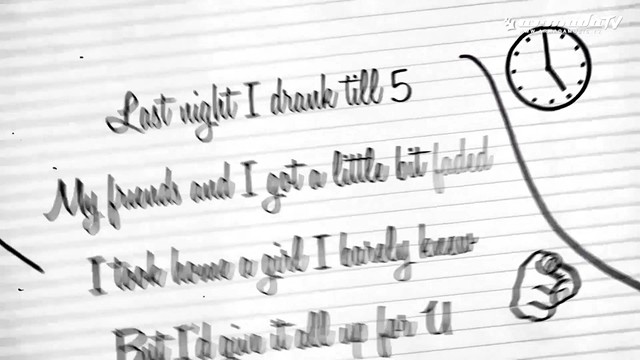 armadaTV
Last night I drank till 5
My friends and I got a little bit faded
I took home a girl I barely know
But I'd give it all up for U